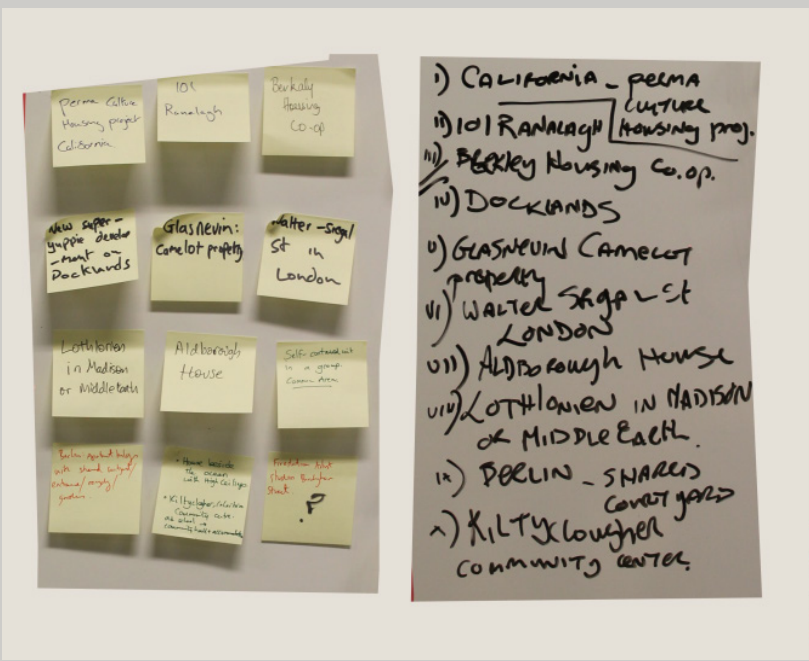 Perma Culture
Housing project
California
101
Ranalagh
Berkaly
Housing
Co-op
New super-
yuppie develop
-ment on
Docklands
Glasnevin:
Camelot property
Walter-Segal
St in
London
Lothlorien
in Madison
or Middle Earth
Aldborough
House
Self-contained unit
in a group.
Common Area
Berlin Apartment
with shared
entrance/
garden
• House beside
the ocean
with High Ceilings
• Kiltyclogher
Community centre
old school
Community
Studios
Street.
?
i) CALIFORNIA - PERMA
CULTURE
ii) 101 RANALAGH HOUSING proj.
iii) BERKLEY HOUSING CO.OP.
iv) DOCKLANDS
v) GLASNEVIN CAMELOT
property
vi) WALTER SEGAL St
LONDON
vii) ALDBOROUGH HOUSE
viii) LOTHLONIEN IN MADISON
OR MIDDLE EARTH.
ix) BERLIN - SHARED
COURTYARD
x) KILTYCLOUGHER
COMMUNITY CENTER.